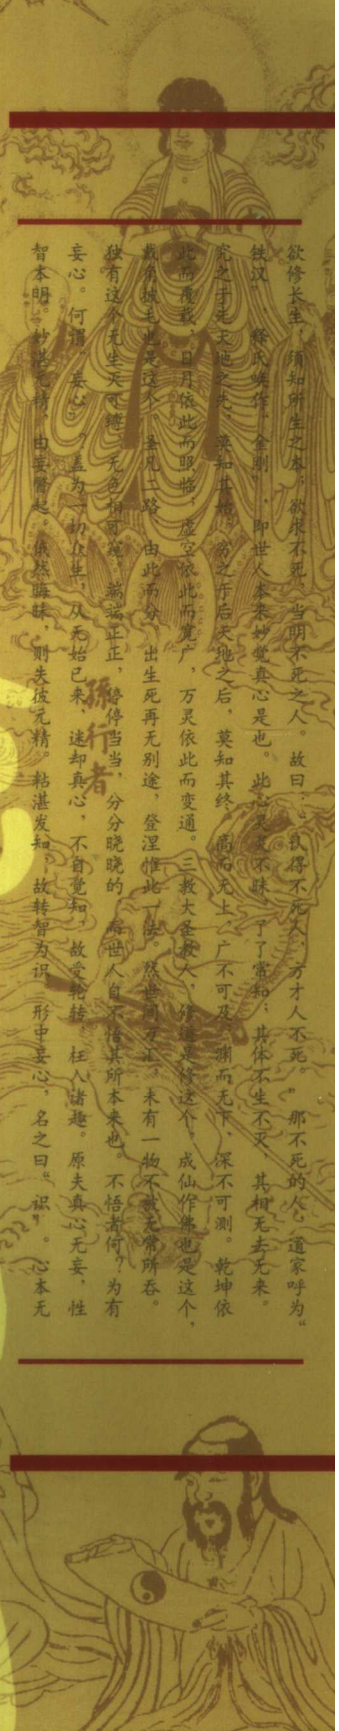 欲修长生，须知所生之本；欲求不死，当明不死之人。故曰：“认得不死人，方才人不死。”那不死的人，道家呼为“
铁汉”，释氏唤作“金刚”，即世人本来妙觉真心是也。此心灵灵不昧，了了常知；其体不生不灭，其相无去无来。
究之于先天地之先，莫知其始；穷之于后天地之后，莫知其终。高而无上，广不可及；渊而无下，深不可测。乾坤依
此而覆载，日月依此而照临，虚空依此而宽广，万灵依此而变通。三教大圣教人，修道是修这个，成仙作佛也是这个，
戴角披毛也是这个。圣凡二路，由此而分，出生死再无别途，登涅惟此一法。然世间万汇，未有一物不被无常所吞。
独有这个无生灭可缚，无色相可窥。端端正正，停停当当，分分晓晓的，而世人自不悟其所本来也。不悟者何？为有
妄心。何谓“妄心”？盖为一切众生，从无始已来，迷却真心，不自觉知，故受轮转，枉入诸趣。原夫真心无妄，性
智本明。妙湛元精，由妄瞥起。俄然晦昧，则失彼元精。粘湛发知，故转智为识，形中妄心，名之曰“识”。心本无
孫行者